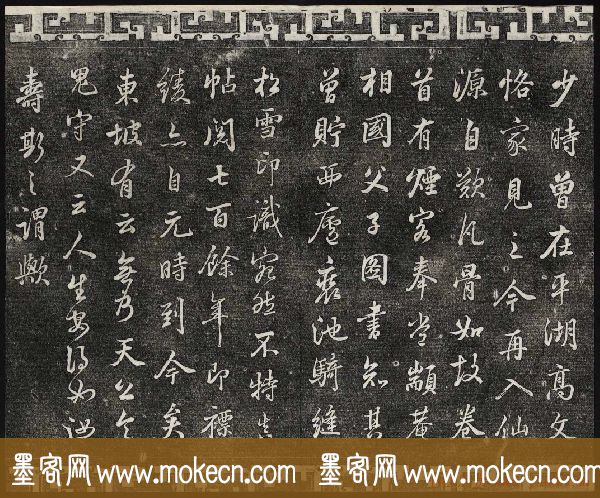 少時曾在平湖高文
恪家見之今再入仙
源自歎凡骨如故卷
首有煙客奉常顓菴
相國父子圖書知其
曾貯西廬裘池騎縫
松雪印識宛然不特真
帖閱七百餘年即褾
綾亦自元時到今矣
東坡有云無乃天公令
鬼守又云人生安得如汝
壽斯之謂歟
墨客网 www.mokecn.com 墨客网 www.mokecn.com